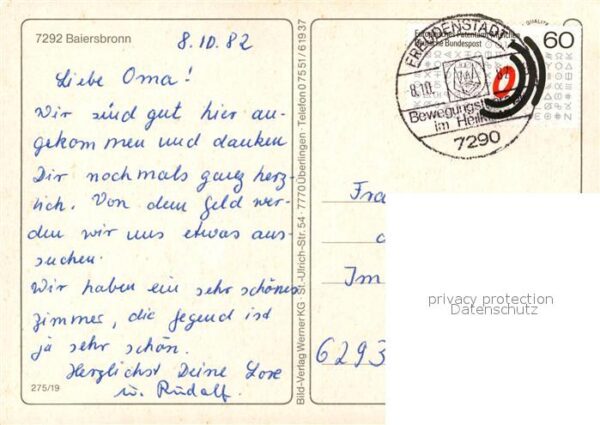 7292 Baiersbronn
8.10.82
Liebe Oma!
Wir sind gut hier an-
gekommen und danken
Dir nochmals ganz herz-
lich. Von dem Geld wer-
den wir uns etwas aus-
suchen.
Wir haben ein sehr schönes
Zimmer, die Gegend ist
ja sehr schön.
Herzlichst Deine Lore
u. Rudolf.
275/19
Bild-Verlag Werner KG · St.-Ulrich-Str. 54 · 7770 Überlingen · Telefon 07551/61937
FREUDENSTADT
8.10. 82
Bewegungs
im Heil
7290
Deutsche Bundespost
60
Fra
Im
6293
privacy protection
Datenschutz